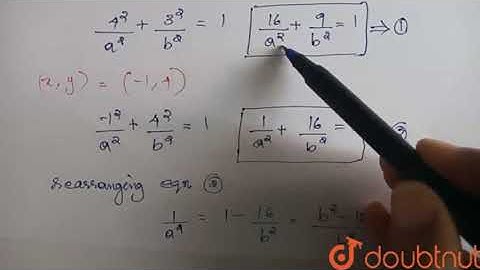 4²/a² + 3²/b² = 1   16/a² + 9/b² = 1 ⇒ ①
(x, y) = (-1, 4)
-1²/a² + 4²/b² = 1   1/a² + 16/b² =
rearranging eqn ②
1/a² = 1 - 16/b² =
doubtnut